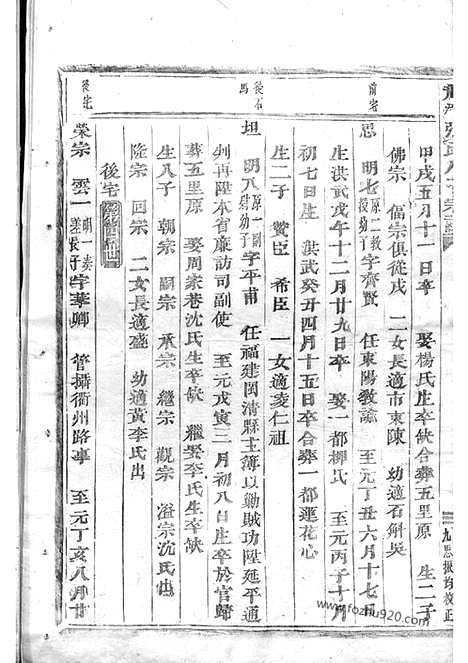 甲戌五月十一日卒 娶楊氏生卒缺合葬五里原 生二子
佛宗 偪宗俱從戌 二女長適市東陳 幼適石斛吳
前宅
思 明七原二教授幼子字齊賢 任東陽教諭 至元丁丑六月十七日
生洪武戊午十二月廿九日卒 娶一都柳氏 至元丙子十月
初七日生 洪武癸丑四月十五日卒合葬一都蓮花心
生二子 贊臣 希臣 一女適凌仁祖
後石馬
坦 明八原一副使幼子字平甫 任福建閩清縣主簿以勦賊功陞延平通
判再陞本省廉訪司副使 至元戊寅三月初八日生卒於官歸
葬五里原 娶周家巷沈氏生卒缺 繼娶李氏生卒缺
生八子 朝宗 嗣宗 承宗 繼宗 觀宗 溢宗沈氏出
隆宗 回宗 二女長適盛 幼適黃李氏出
後宅
後宅
榮宗 雲一明一養義長子字華卿 管攝衢州路事 至元丁亥八月廿
www.fozhu920.com